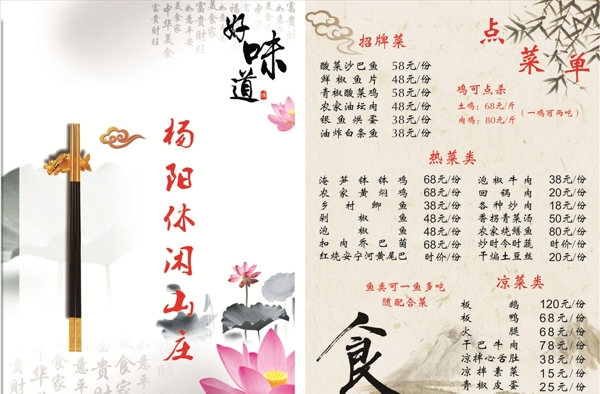 好味道
杨阳休闲山庄
点菜单
招牌菜
酸菜沙巴鱼 58元/份
鲜椒鱼片 48元/份
青椒酸菜鸡 58元/份
农家油坛肉 48元/份
银鱼烘蛋 38元/份
油炸白条鱼 38元/份
鸡可点杀
土鸡：68元/斤
肉鸡：80元/斤
（一鸡可两吃）
热菜类
淹笋钵钵鸡 68元/份
农家黄焖鸡 68元/份
乡村鲫鱼 38元/份
剁椒鱼 48元/份
泡椒鱼 48元/份
扣肉荞巴菌 68元/份
红烧安宁河黄尾巴 时价/份
泡椒牛肉 38元/份
回锅肉 20元/份
各种炒肉 18元/份
香拐青菜汤 50元/份
农家烧鳝鱼 80元/份
炒时令时蔬 时价/份
干煸土豆丝 20元/份
鱼类可一鱼多吃
随配合菜
凉菜类
板鹅 120元/份
板鸭 68元/份
火腿 68元/份
干巴牛肉 78元/份
凉拌心舌肚 38元/份
凉拌素菜 15元/份
青椒皮蛋 25元/份
食